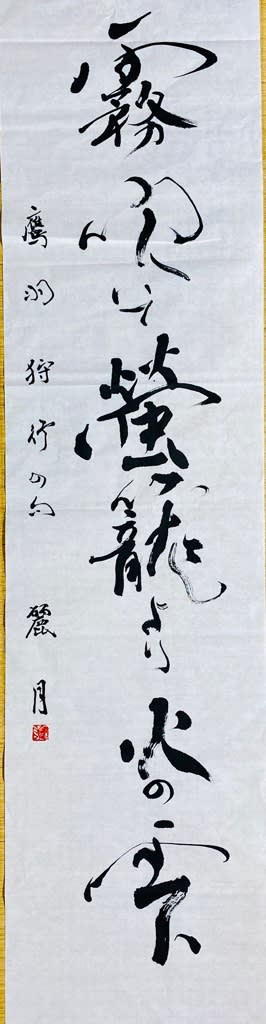 霧吹いて螢籠より火の雫
鷹羽狩行の句 麗月